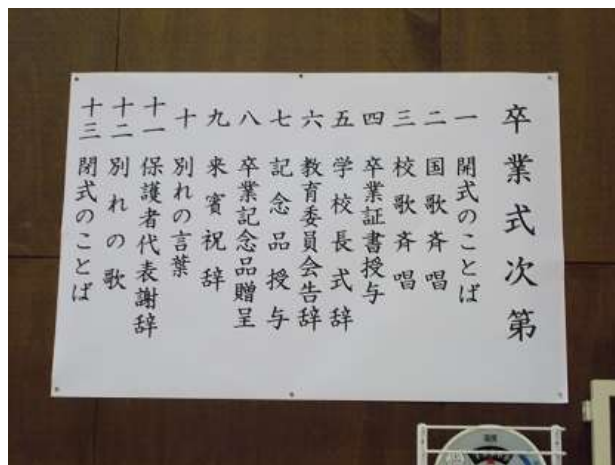 卒業式次第
一 開式のことば
二 国歌斉唱
三 校歌斉唱
四 卒業証書授与
五 学校長式辞
六 教育委員会告辞
七 記念品授与
八 卒業記念品贈呈
九 来賓祝辞
十 別れの言葉
十一 保護者代表謝辞
十二 別れの歌
十三 閉式のことば